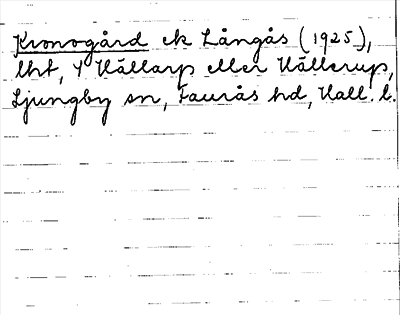 Kronogård ek Långås (1925),
lht, 4 Vällarp eller Vällerup,
Ljungby sn, Faurås hd, Hall. l.